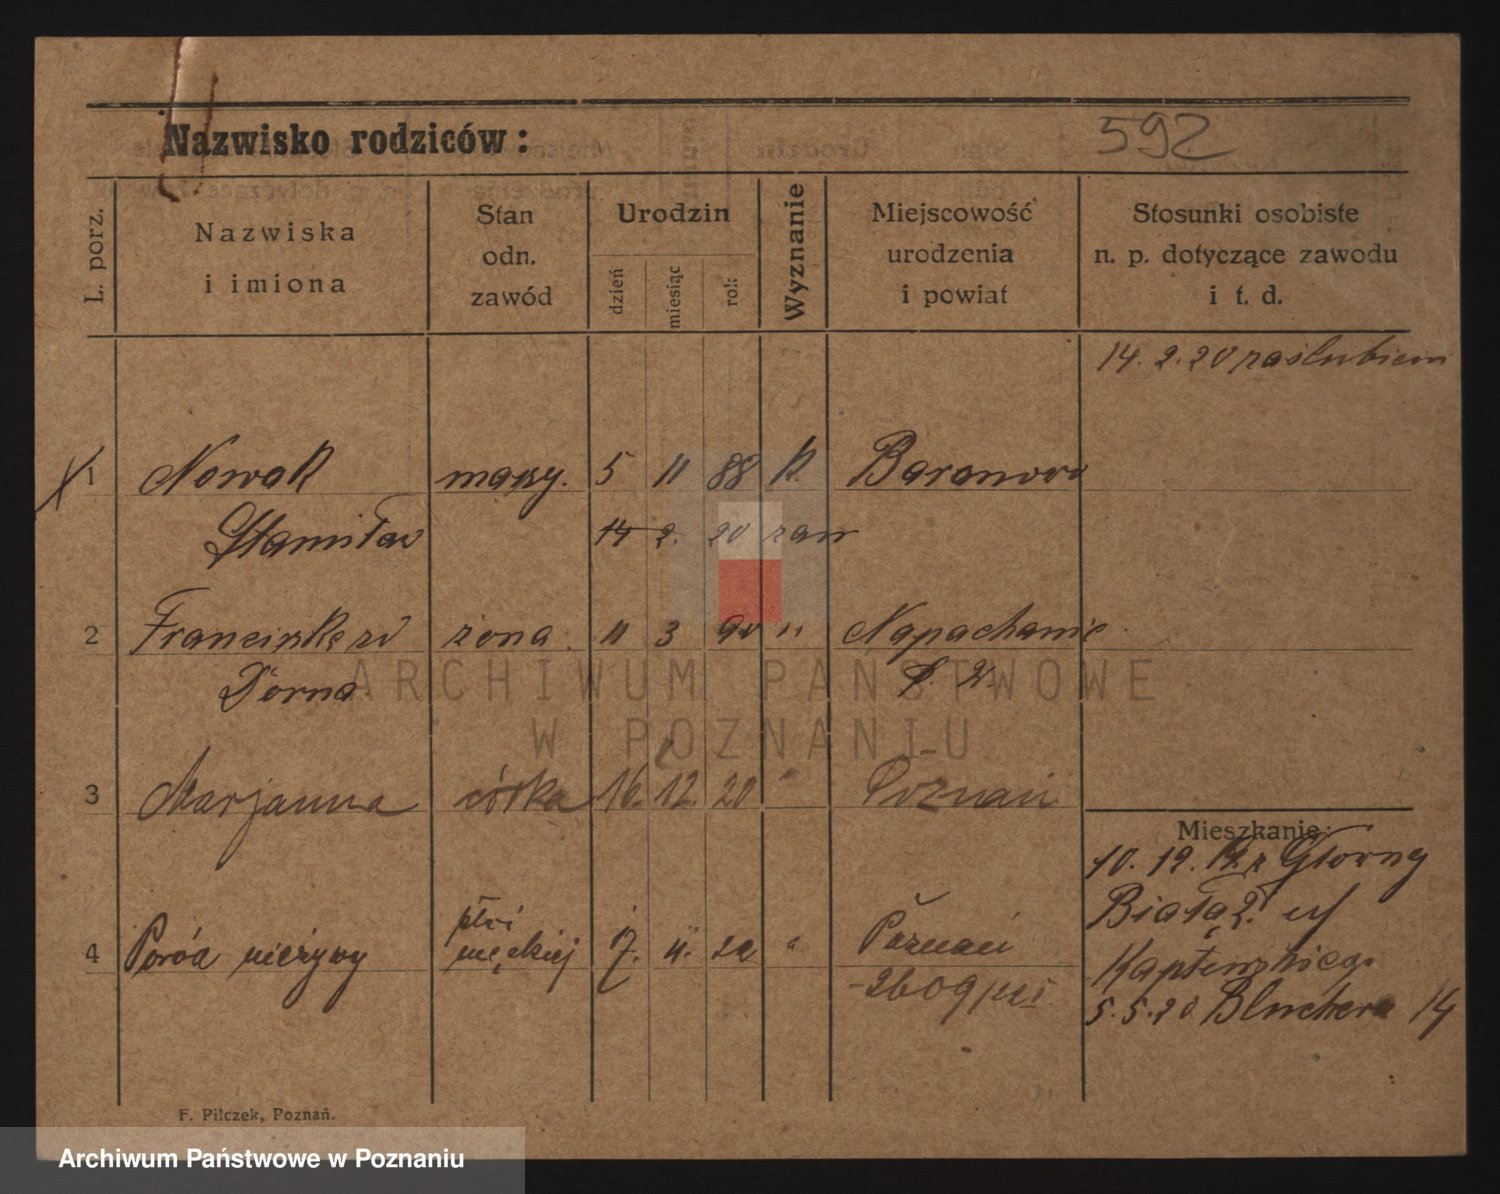 Nazwisko rodziców:
592
L. porz.
Nazwiska
i imiona
Stan
odn.
zawód
Urodzin
dzień
miesiąc
rok
Wyznanie
Miejscowość
urodzenia
i powiat
Stosunki osobiste
n. p. dotyczące zawodu
i t. d.
14. 2. 20 zaślubieni
1 Nowak 5 11 88 k. Baranowo
Stanisław 14 2. 20
2 Franciszka żona 11 3 90 " Napachanie
Dorna
3 Marjanna córka 16. 12. 20 " Poznań
Mieszkanie:
10. 19.
płci
4 Poród nieżywy męskiej 7. 11. 22 " Poznań
5. 5. 20 Bluchera 14
F. Pilczek, Poznań.
ARCHIWUM PAŃSTWOWE
W POZNANIU
Archiwum Państwowe w Poznaniu